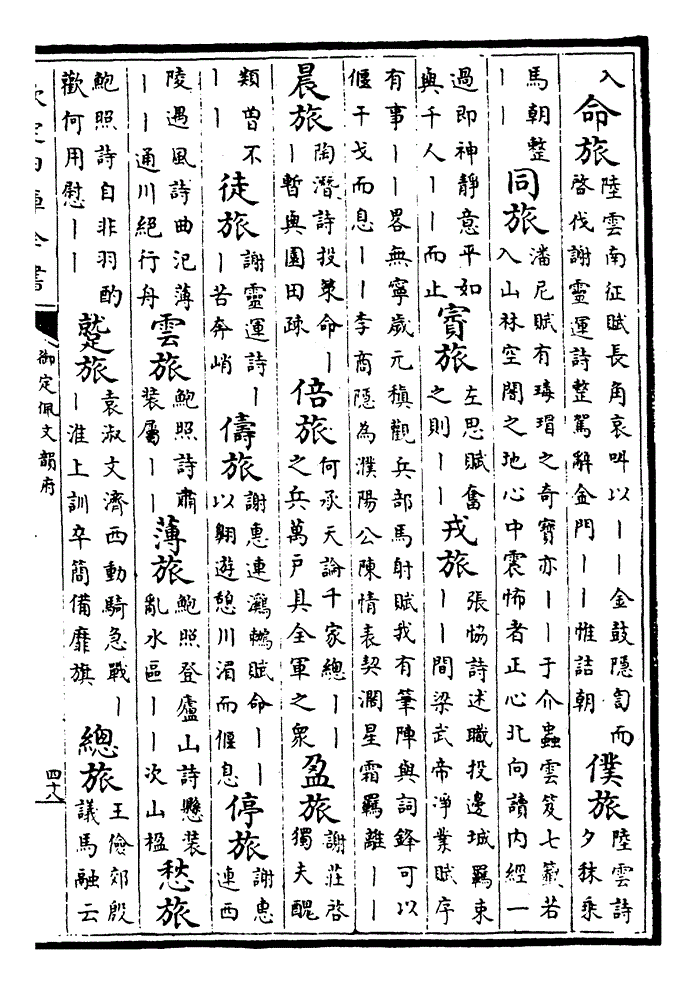 入
命旅
陸雲南征賦長角哀叫以丨丨金鼓隱訇而
啓伐謝靈運詩整駕辭金門丨丨惟詰朝
僕旅
陸雲詩
夕秣乘
馬朝整
丨丨
同旅
潘尼賦有瑇瑁之奇寳亦丨丨于介蟲雲笈七籖若
入山林空闇之地心中震怖者正心北向讀内經一
過即神靜意平如
與千人丨丨而止
賓旅
左思賦奮
之則丨丨
戎旅
張恊詩述職投邊城羈束
丨丨間梁武帝淨業賦序
有事丨丨畧無寧歲元稹觀兵部馬射賦我有筆陣與詞鋒可以
偃干戈而息丨丨李商隱為濮陽公陳情表契濶星霜羈離丨丨
晨旅
陶潛詩投策命丨
丨暫與園田疎
倍旅
何承天論千家總丨丨
之兵萬戶具全軍之衆
盈旅
謝莊啓
獨夫醜
類曾不
丨丨
徒旅
謝靈運詩丨
丨苦奔峭
儔旅
謝惠連鸂鶒賦命丨丨
以翺遊憩川湄而偃息
停旅
謝惠
連西
陵遇風詩曲汜薄
丨丨通川絕行舟
雲旅
鮑照詩肅
装屬丨丨
薄旅
鮑照登廬山詩懸装
亂水區丨丨次山楹
愁旅
鮑照詩自非羽酌
歡何用慰丨丨
蹔旅
袁淑文濟西動騎急戰丨
丨淮上訓卒簡備靡旗
總旅
王儉郊殷
議馬融云
欽定四庫全書
御定佩文韻府
四十八